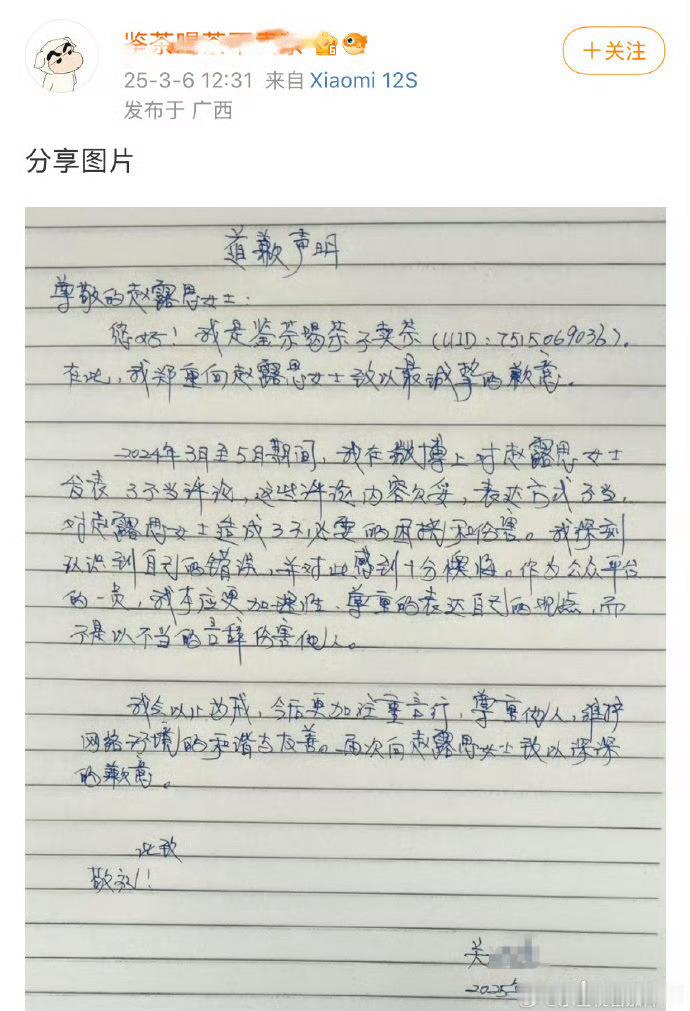 25-3-6 12:31 来自 Xiaomi 12S
＋关注
发布于 广西
分享图片
道歉声明
尊敬的赵露思女士：
您好！我是鉴茶喝茶不卖茶(UID:7515069036)。
在此，我郑重向赵露思女士致以最诚挚的歉意。
2024年3月至5月期间，我在微博上对赵露思女士
发表了不当评论，这些评论内容欠妥，表达方式不当，
对赵露思女士造成了不必要的困扰和伤害。我深刻
认识到自己的错误，并对此感到十分懊悔。作为公众平台
的一员，我本应更加理性、尊重的表达自己的观点，而
不是以不当的言辞伤害他人。
我会以此为戒，今后更加注重言行，尊重他人，维护
网络环境的和谐与友善。再次向赵露思女士致以深深
的歉意。
此致
敬礼！
关
2025年